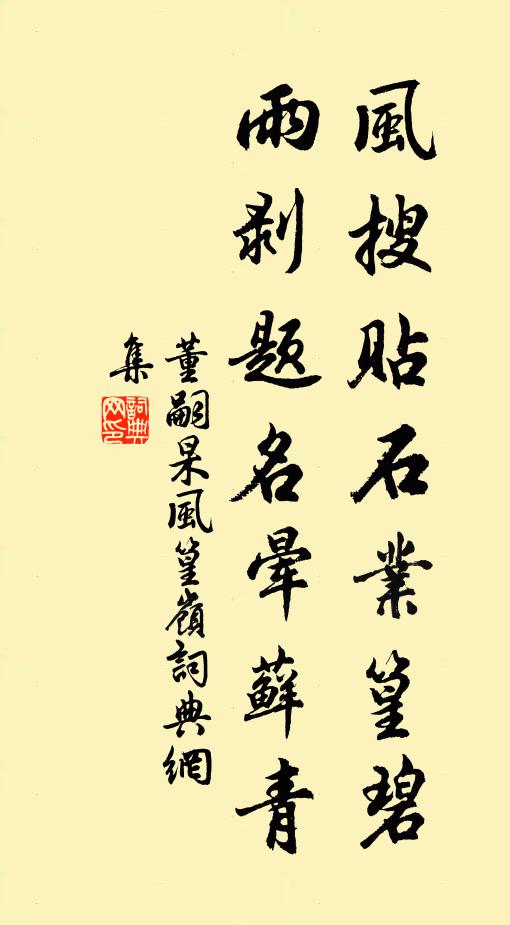 風搜貼石業篁碧
雨剥題名暈蘚青
董嗣杲風篁嶺詞典網
集
詞典网印